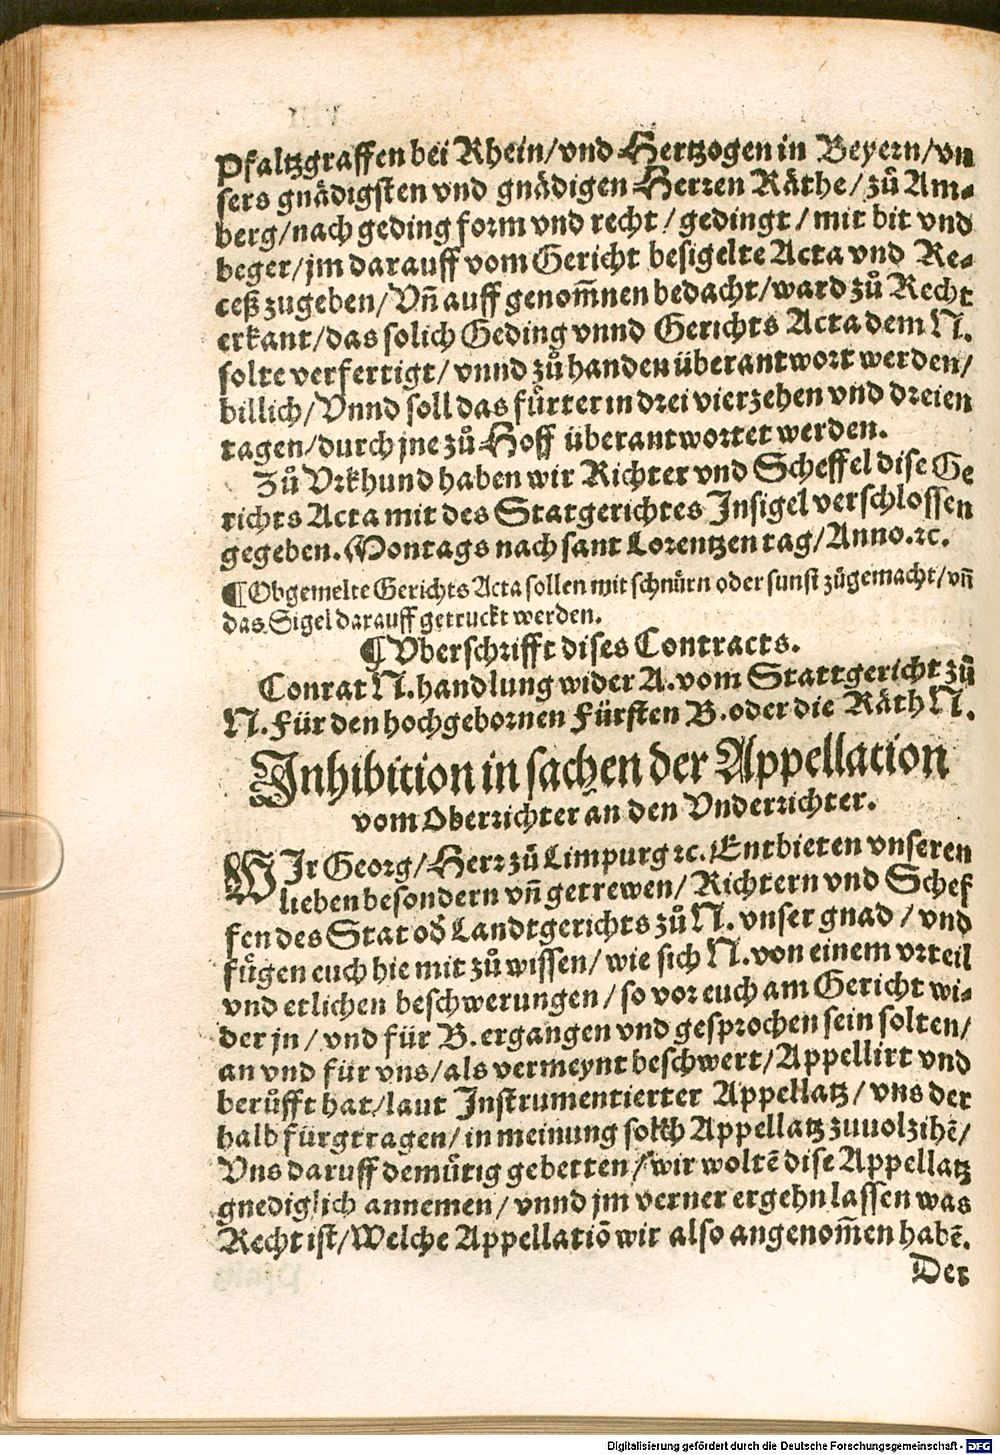 Pfaltzgraffen bei Rhein/vnd Hertzogen in Beyern/vn
sers gnädigsten vnd gnädigen Herren Räthe/zů Am-
berg/nach geding form vnd recht/gedingt/mit bit vnd
beger/jm darauff vom Gericht besigelte Acta vnd Re-
ceß zugeben/Vñ auff genom̃nen bedacht/ward zů Recht
erkant/das solich Geding vnnd Gerichts Acta dem N.
solte verfertigt/vnnd zů handen überantwort werden/
billich/Vnnd soll das fürter in drei vierzehen vnd dreien
tagen/durch jne zů Hoff überantwortet werden.
Zů Vrkhund haben wir Richter vnd Scheffel dise Ge
richts Acta mit des Statgerichtes Insigel verschlossen
gegeben. Montags nach sant Lorentzen tag/Anno.⁊c.
¶ Obgemelte Gerichts Acta sollen mit schnürn oder sunst zůgemacht/vñ
das Sigel darauff getruckt werden.
¶ Vberschrifft dises Contracts.
Conrat N. handlung wider A. vom Stattgericht zů
N. Für den hochgebornen Fürsten B. oder die Räth N.
Inhibition in sachen der Appellation
vom Oberrichter an den Vnderrichter.
WIr Georg/Herr zů Limpurg ⁊c. Entbieten vnseren
lieben besondern vñ getrewen/Richtern vnd Schef
fen des Stat oď Landtgerichts zů N. vnser gnad/vnd
fůgen euch hie mit zů wissen/wie sich N. von einem vrteil
vnd etlichen beschwerungen/so vor euch am Gericht wi-
der jn/vnd für B. ergangen vnd gesprochen sein solten/
an vnd für vns/als vermeynt beschwert/Appellirt vnd
berůfft hat/laut Instrumentierter Appellatz/vns der
halb fürgtragen/in meinung solch Appellatz zuuolzihẽ/
Vns daruff demůtig gebetten/wir woltẽ dise Appellatz
gnediglich annemen/vnnd jm verner ergehn lassen was
Recht ist/Welche Appellatiõ wir also angenom̃en habẽ.
Der
Digitalisierung gefördert durch die Deutsche Forschungsgemeinschaft - DFG